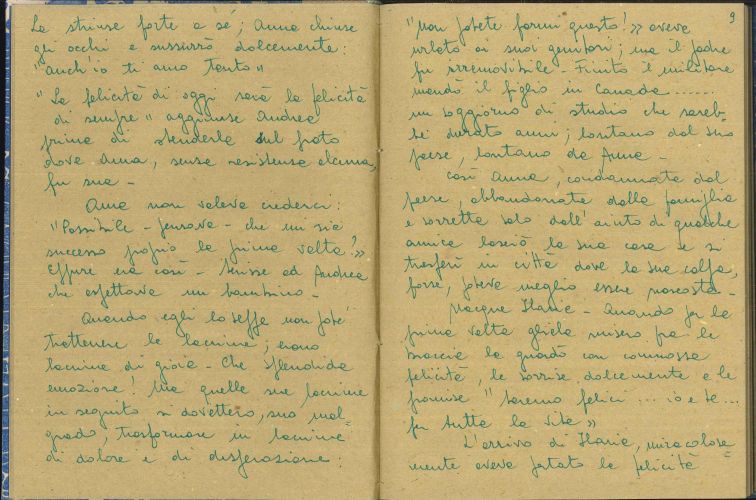 La strinse forte a sé; Anna chiuse
gli occhi e sussurrò dolcemente:
"anch'io ti amo tanto"
"La felicità di oggi sarà la felicità
di sempre" aggiunse Andrea
prima di stenderla sul prato
dove Anna, senza resistenza alcuna,
fu sua -
Anna non voleva crederci:
"Possibile - pensava - che mi sia
successo proprio la prima volta?"
Eppure era così - Scrisse ad Andrea
che aspettava un bambino -
Quando egli lo seppe non poté
trattenere le lacrime; erano
lacrime di gioia - Che splendida
emozione! Ma quelle sue lacrime
in seguito si dovettero, suo mal=
grado, trasformare in lacrime
di dolore e di disperazione:
9
"Non potete farmi questo!" aveva
urlato ai suoi genitori; ma il padre
fu irremovibile - Finito il militare
mandò il figlio in Canada ......
un soggiorno di studio che sareb=
be durato anni; lontano dal suo
paese, lontano da Anna -
Così Anna, condannata dal
paese, abbandonata dalla famiglia
e sorretta solo dall'aiuto di qualche
amica lasciò la sua casa e si
trasferì in città dove la sua colpa,
forse, poteva meglio essere nascosta -
Nacque Ilaria - Quando per la
prima volta gliela misero fra le
braccia la guardò con commossa
felicità, le sorrise dolcemente e le
promise "Saremo felici ... io e te ...
per tutta la vita"
L'arrivo di Ilaria, miracolosa=
mente aveva portato la felicità